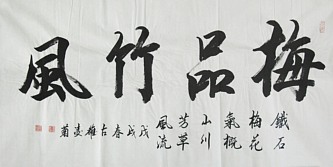 梅品竹風
鐵石
梅花
氣概
山川
芳草
風流
戊戌春古雄